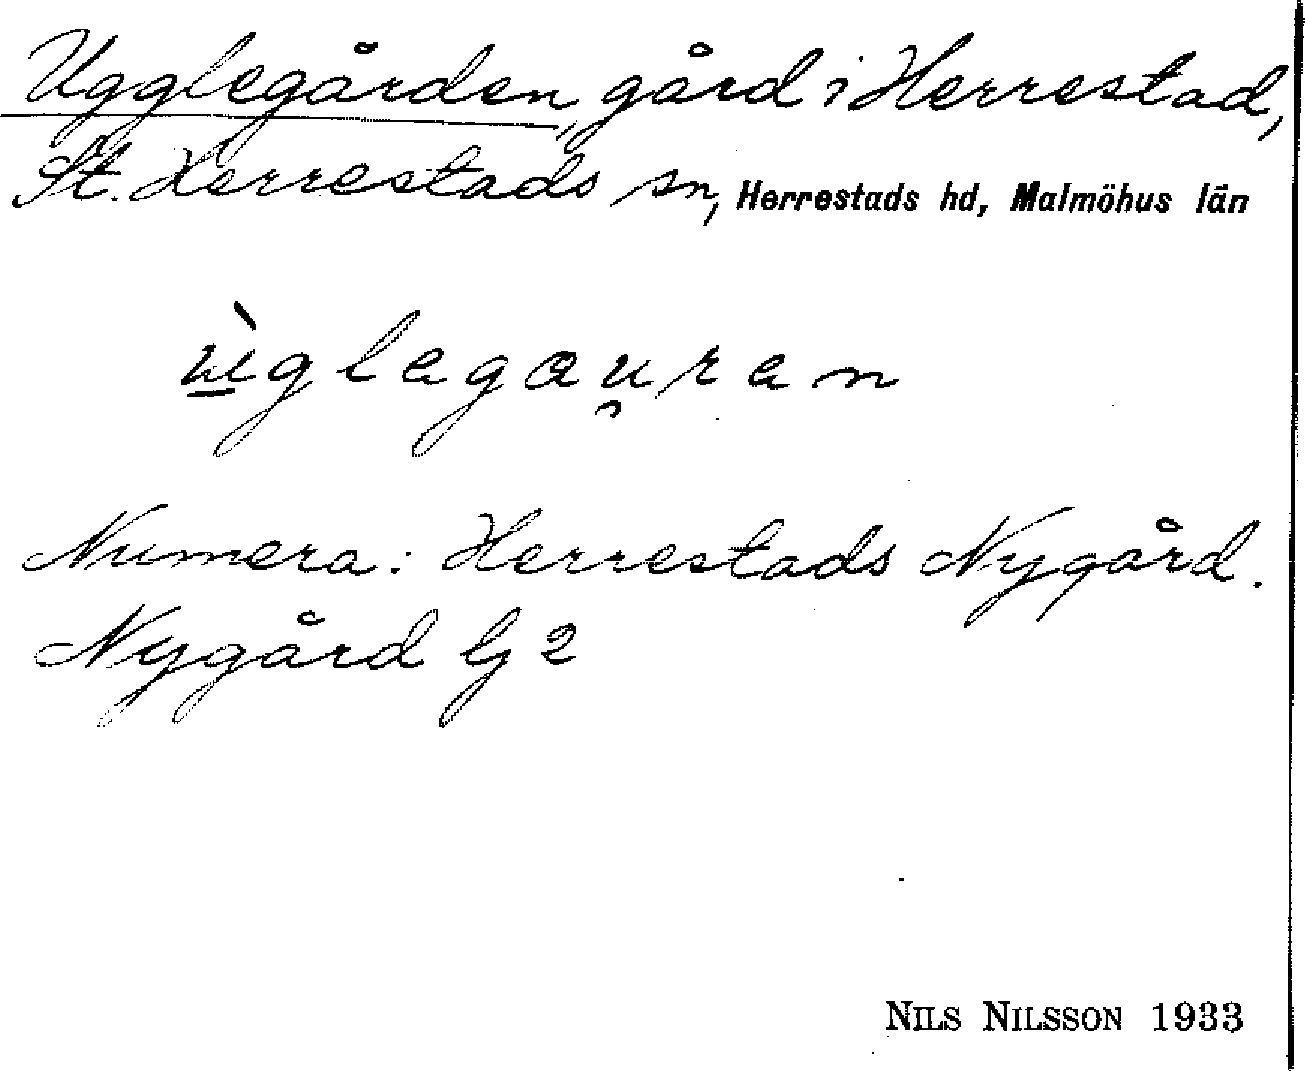 Ugglegården, gård i Herrestad,
St. Herrestads sn, Herrestads hd, Malmöhus län
ùglegau̯ren
Numera: Herrestads Nygård.
Nygård G 2
NILS NILSSON 1933